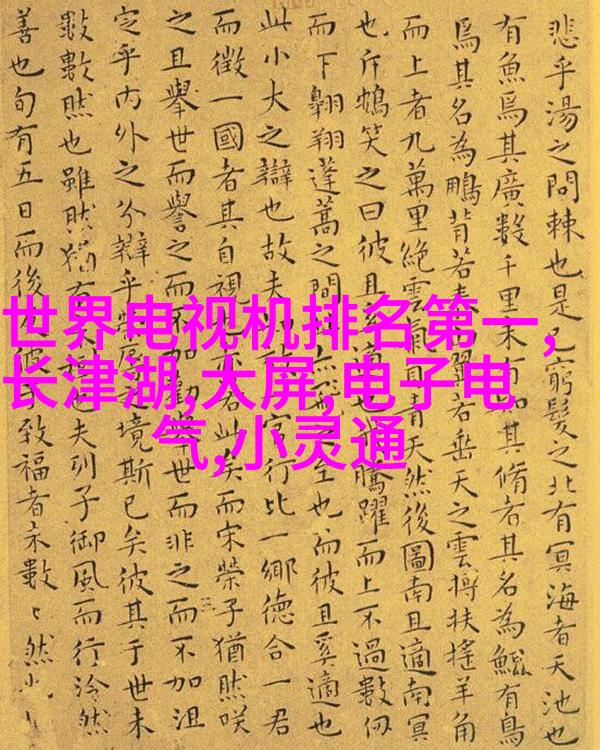 悲乎湯之問棘也是已窮髮之北有冥海者天池也
有魚焉其廣數千里未有知其脩者其名為鯤有鳥
焉其名為鵬背若翼若垂天之雲摶扶搖羊角
而上者九萬里絕雲氣負青天然後圖南且適南冥
也斥鴳笑之曰彼且奚適也騰躍而上不過數仞
而下翱翔蓬蒿之間之至也而彼且奚適也
此小大之辯也故夫官行比一鄉德合一君
而徵一國者其自視亦若此矣而宋榮子猶然咲
之且舉世而譽之而不加勸舉世而非之而不加沮
定乎內外之分辯乎榮辱之境斯已矣彼其于世未
數數然也雖然猶有未樹也夫列子御風而行泠然
善也旬有五日而後彼于致福者未數〻然
世界电视机排名第一,
长津湖,大屏,电子电
气,小灵通